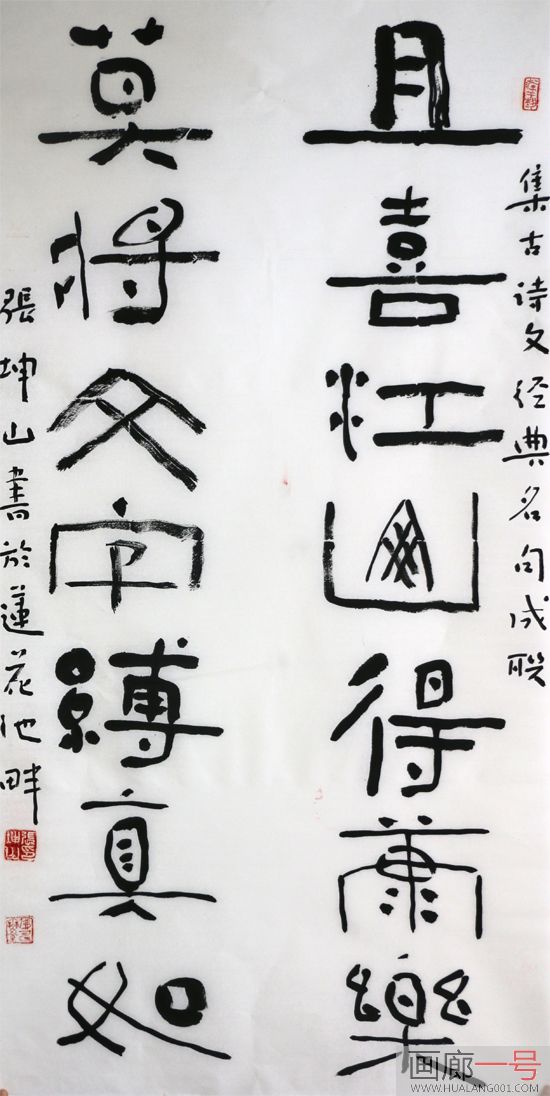 集古诗文经典名句成联
且喜江山得蕭樂
莫将文字縛真如
張坤山書於蓮花池畔
張坤山印
画廊一号
WWW.HUALANG001.COM